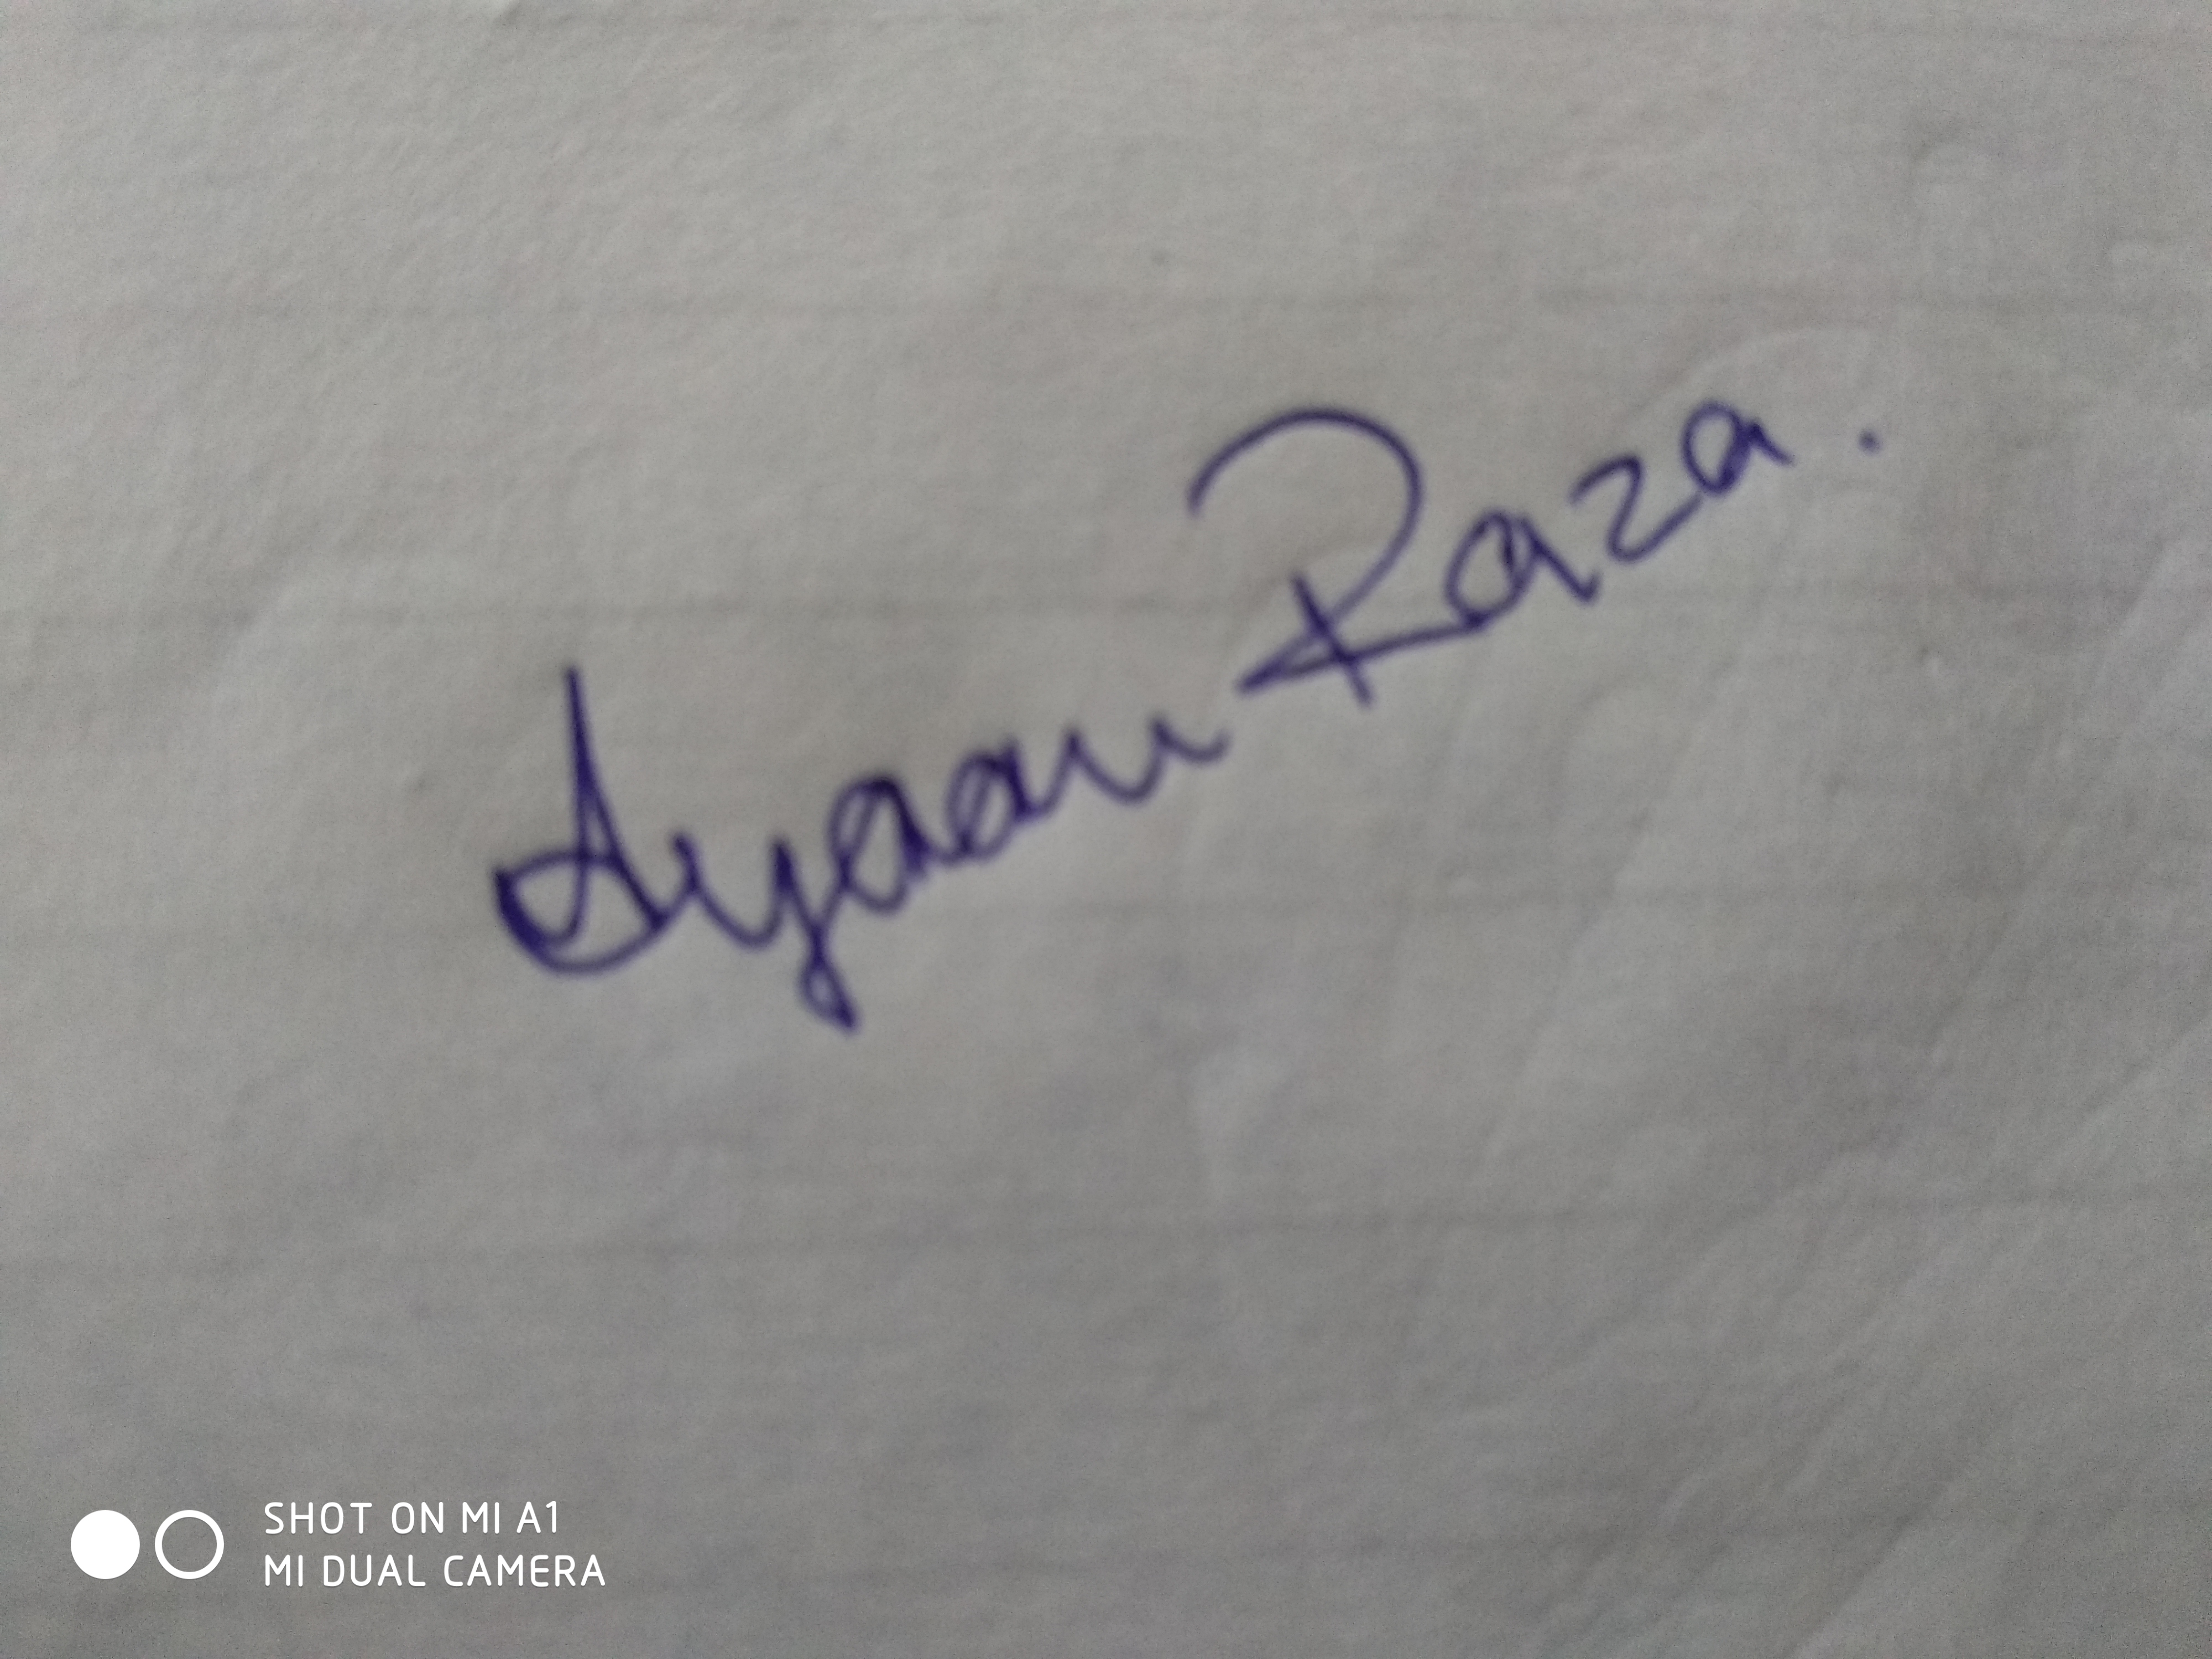 Ayaan Raza.
SHOT ON MI A1
MI DUAL CAMERA